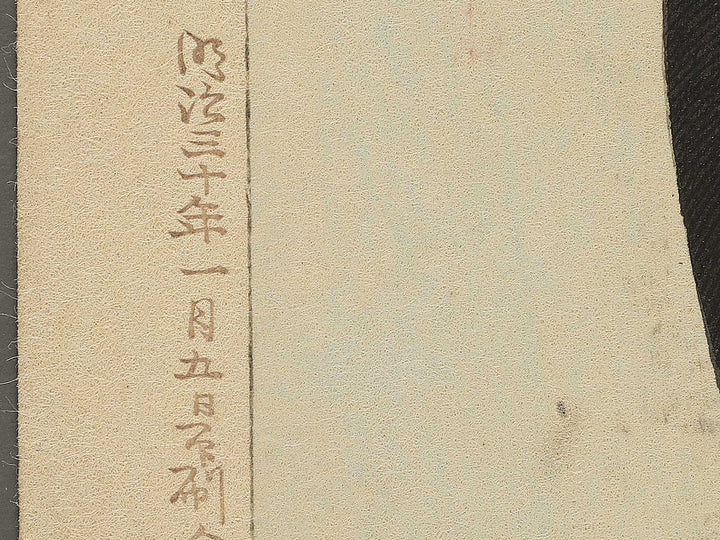 明治三十年一月五日印刷